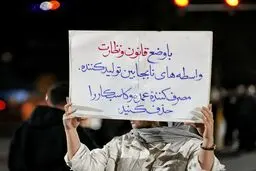 با وضع قانون و نظارت
واسطه های نابجا بین تولیدکننده،
مصرف کننده عمده و کاسبکار را
حذف کنید